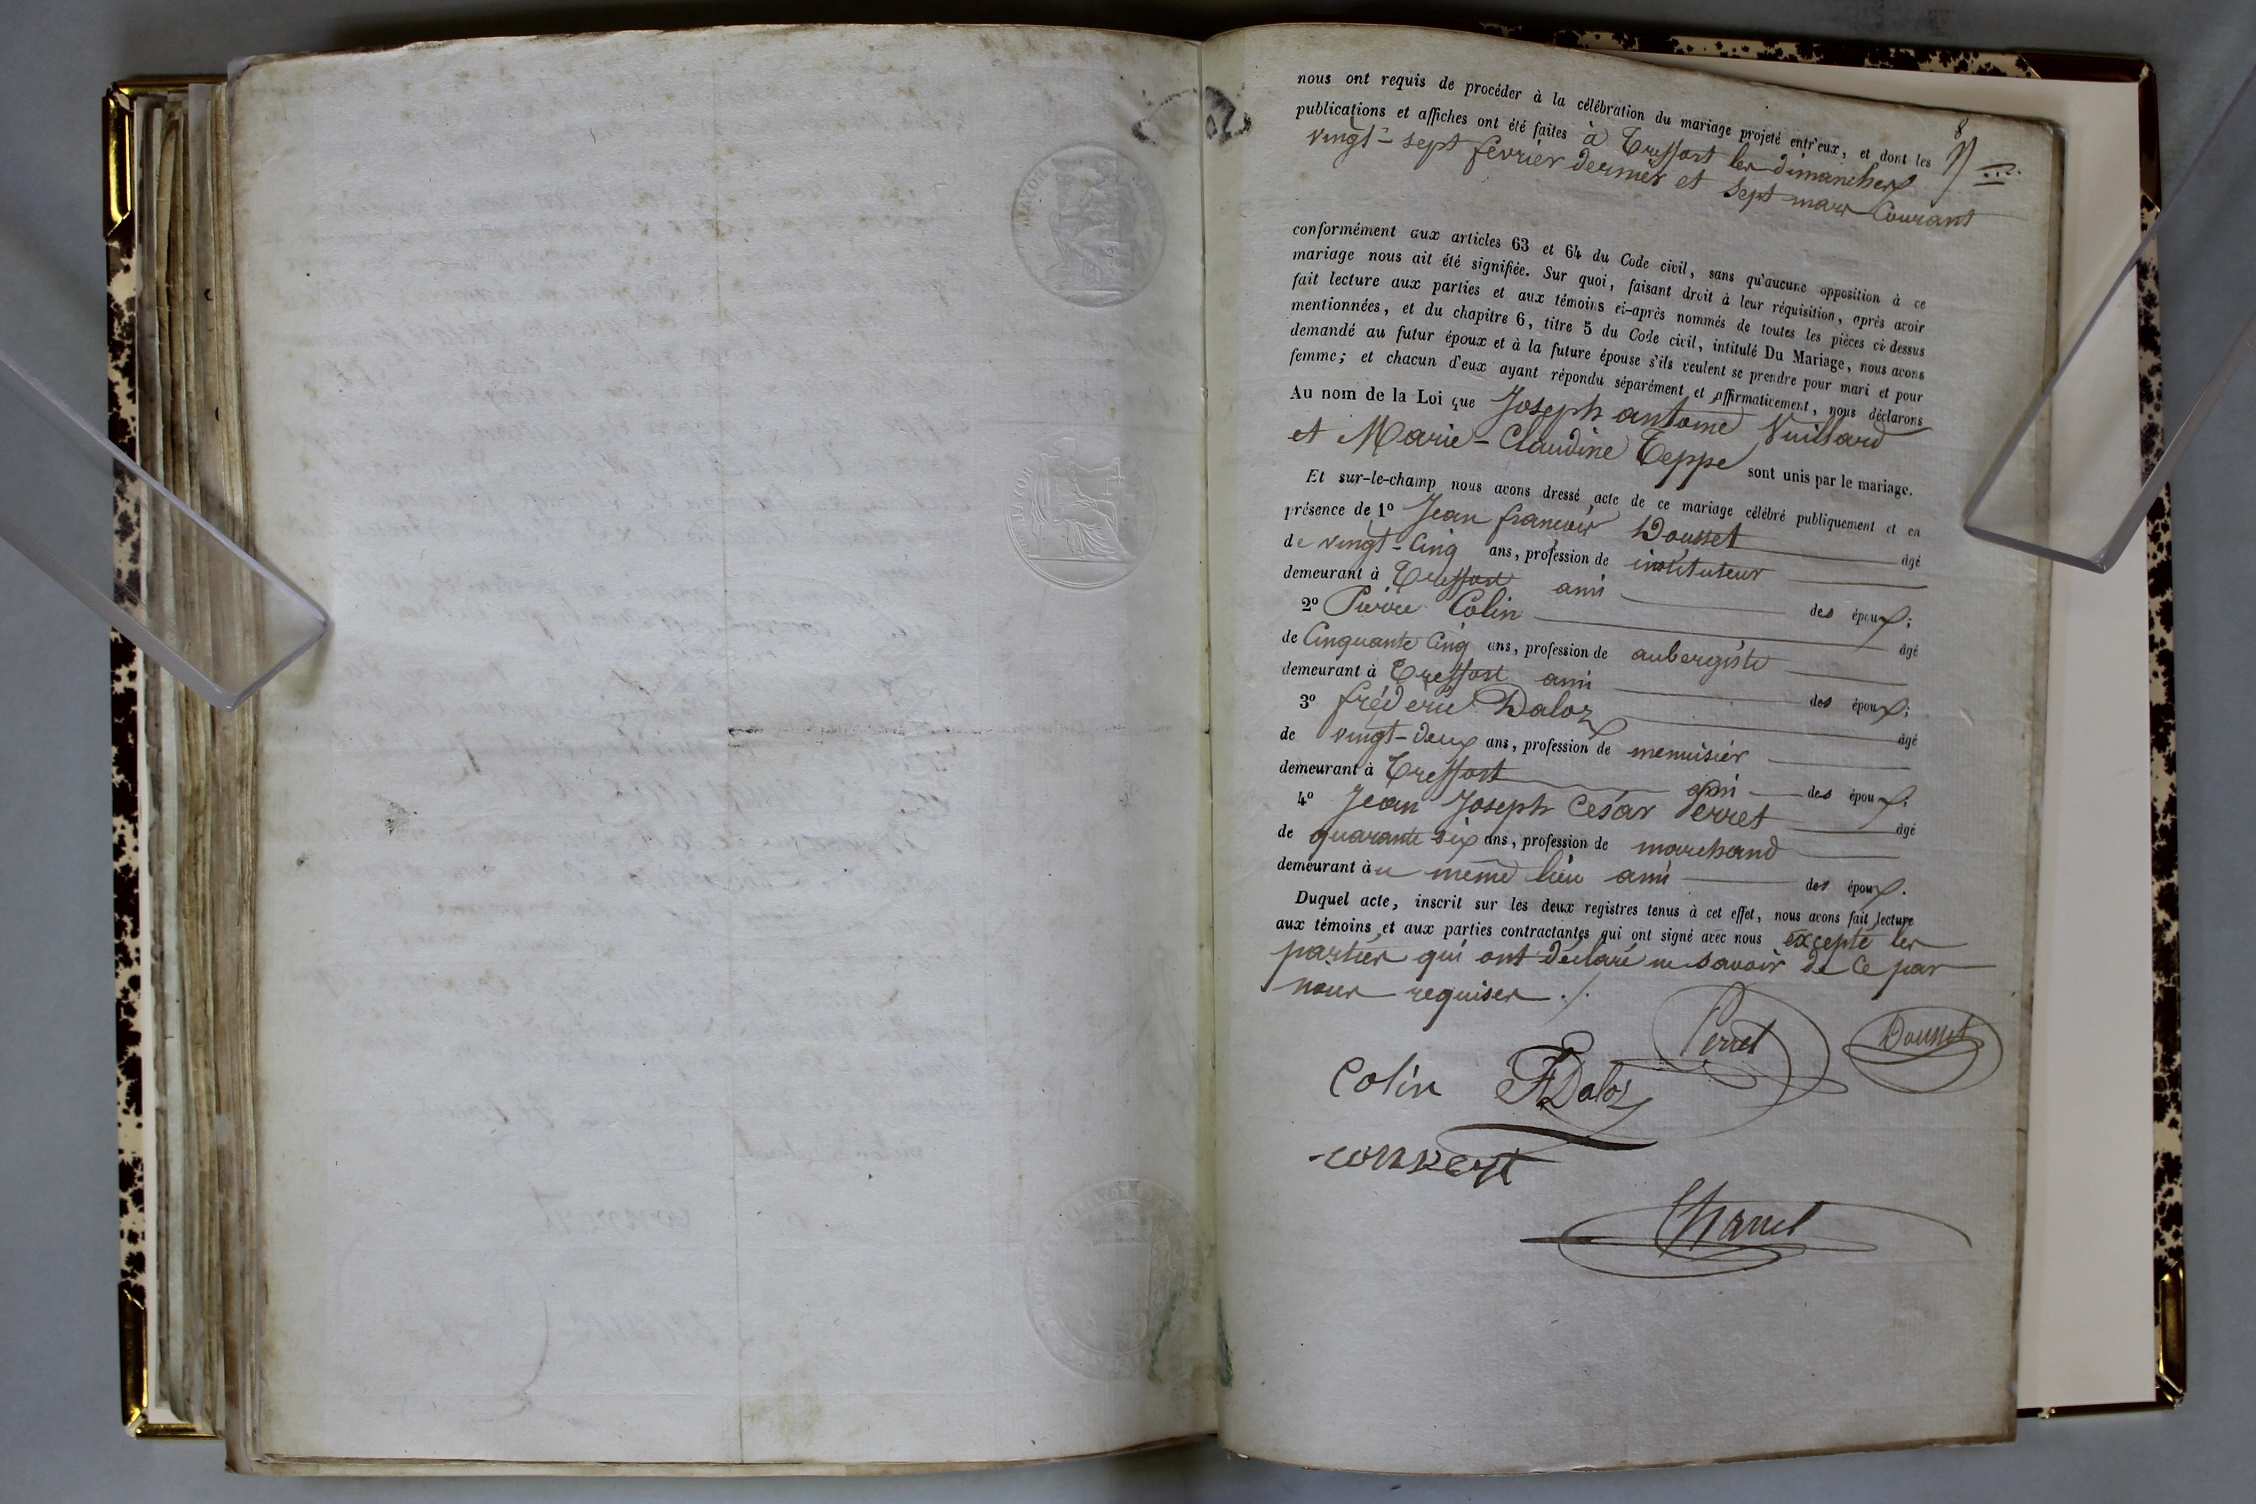 8
nous ont requis de procéder à la célébration du mariage projeté entr'eux, et dont les
publications et affiches ont été faites à Treffort les dimanches
vingt-sept février dernier et sept mars Courant
conformément aux articles 63 et 64 du Code civil, sans qu'aucune opposition à ce
mariage nous ait été signifiée. Sur quoi, faisant droit à leur réquisition, après avoir
fait lecture aux parties et aux témoins ci-après nommés de toutes les pièces ci-dessus
mentionnées, et du chapitre 6, titre 5 du Code civil, intitulé Du Mariage, nous avons
demandé au futur époux et à la future épouse s'ils veulent se prendre pour mari et pour
femme; et chacun d'eux ayant répondu séparément et affirmativement, nous déclarons
Au nom de la Loi que Joseph antoine Vuillard
et Marie-Claudine Teppe sont unis par le mariage.
Et sur-le-champ nous avons dressé acte de ce mariage célébré publiquement et en
présence de 1º Jean françois Dousset âgé
de vingt-Cinq ans, profession de instituteur
demeurant à Treffort ami des époux;
2º Pierre Colin âgé
de Cinquante Cinq ans, profession de aubergiste
demeurant à Treffort ami des époux;
3º frédéric Daloz âgé
de vingt-deux ans, profession de menuisier
demeurant à Treffort ami des époux;
4º Jean Joseph César Perret âgé
de quarante six ans, profession de marchand
demeurant au même lieu ami des époux.
Duquel acte, inscrit sur les deux registres tenus à cet effet, nous avons fait lecture
aux témoins et aux parties contractantes qui ont signé avec nous excepté les
parties qui ont déclaré ne savoir de ce par
nous requises ./.
Perret Dousset
Colin F Daloz
convert